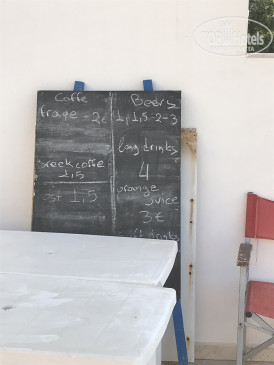 Coffe
frape - 2€
Greek coffe
1,5
ost 1,5
Beers
1,5-2-3
long drinks
4
orange
juice
3€
drinks